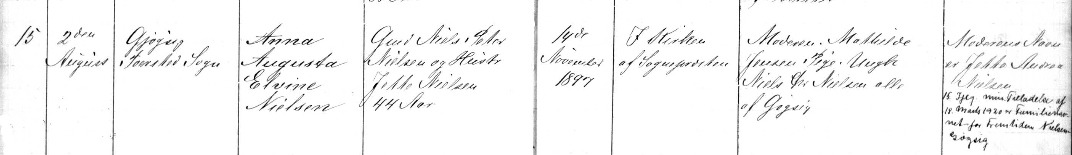 15
2den
August
Gjøgsig
Torsted Sogn
Anna
Augusta
Elvine
Nielsen
Gmd Niels Peter
Nielsen og Hustr
Jette Nielsen
44 Aar
14de
November
1897
I Kirken
af Sognepræsten
Moderen. Mathilde
Jensen Pige. Ungk
Niels Chr Nielsen alle
af Gøgsig
Moderens Navn
er Jette Andrea
Nielsen
min. Tilladelse af
18. Marts 1920 er Familienav-
net for Fremtiden Nielsen
Gøgsig